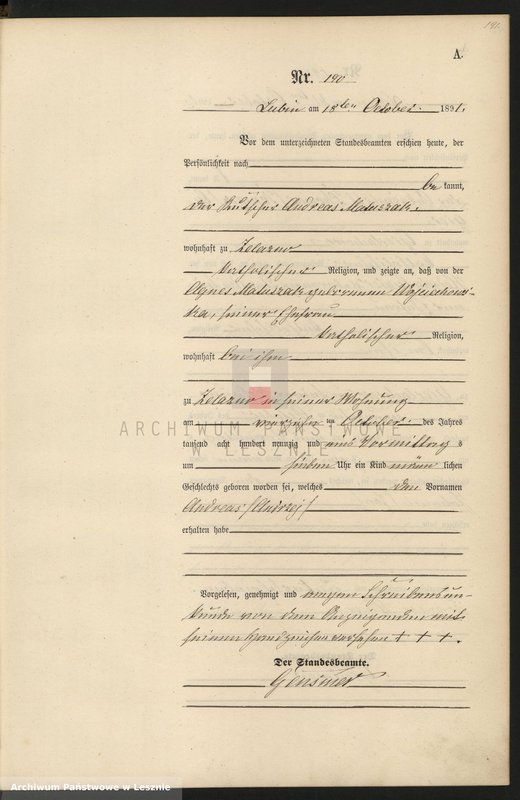 191.
A.
Nr. 190
Lubin am 18ten October 1891.
Vor dem unterzeichneten Standesbeamten erschien heute, der
Persönlichkeit nach
be kannt,
der Kutscher Andreas Matuszak,
wohnhaft zu Zelazno
katholischer Religion, und zeigte an, daß von der
Agnes Matuszak geborenen Wojciechows-
ka, seiner Ehefrau
katholischer Religion,
wohnhaft bei ihm
zu Zelazno in seiner Wohnung
am vierzehn ten October des Jahres
tausend acht hundert neunzig und eins Vormittag s
um sieben Uhr ein Kind männ lichen
Geschlechts geboren worden sei, welches den Vornamen
Andreas /Andrzej/
erhalten habe
Vorgelesen, genehmigt und wegen Schreibensun-
kunde von dem Anzeigenden mit
seinem Handzeichen versehen + + + .
Der Standesbeamte.
Gensmer
ARCHIWUM PAŃSTWOWE
W LESZNIE
Archiwum Państwowe w Lesznie